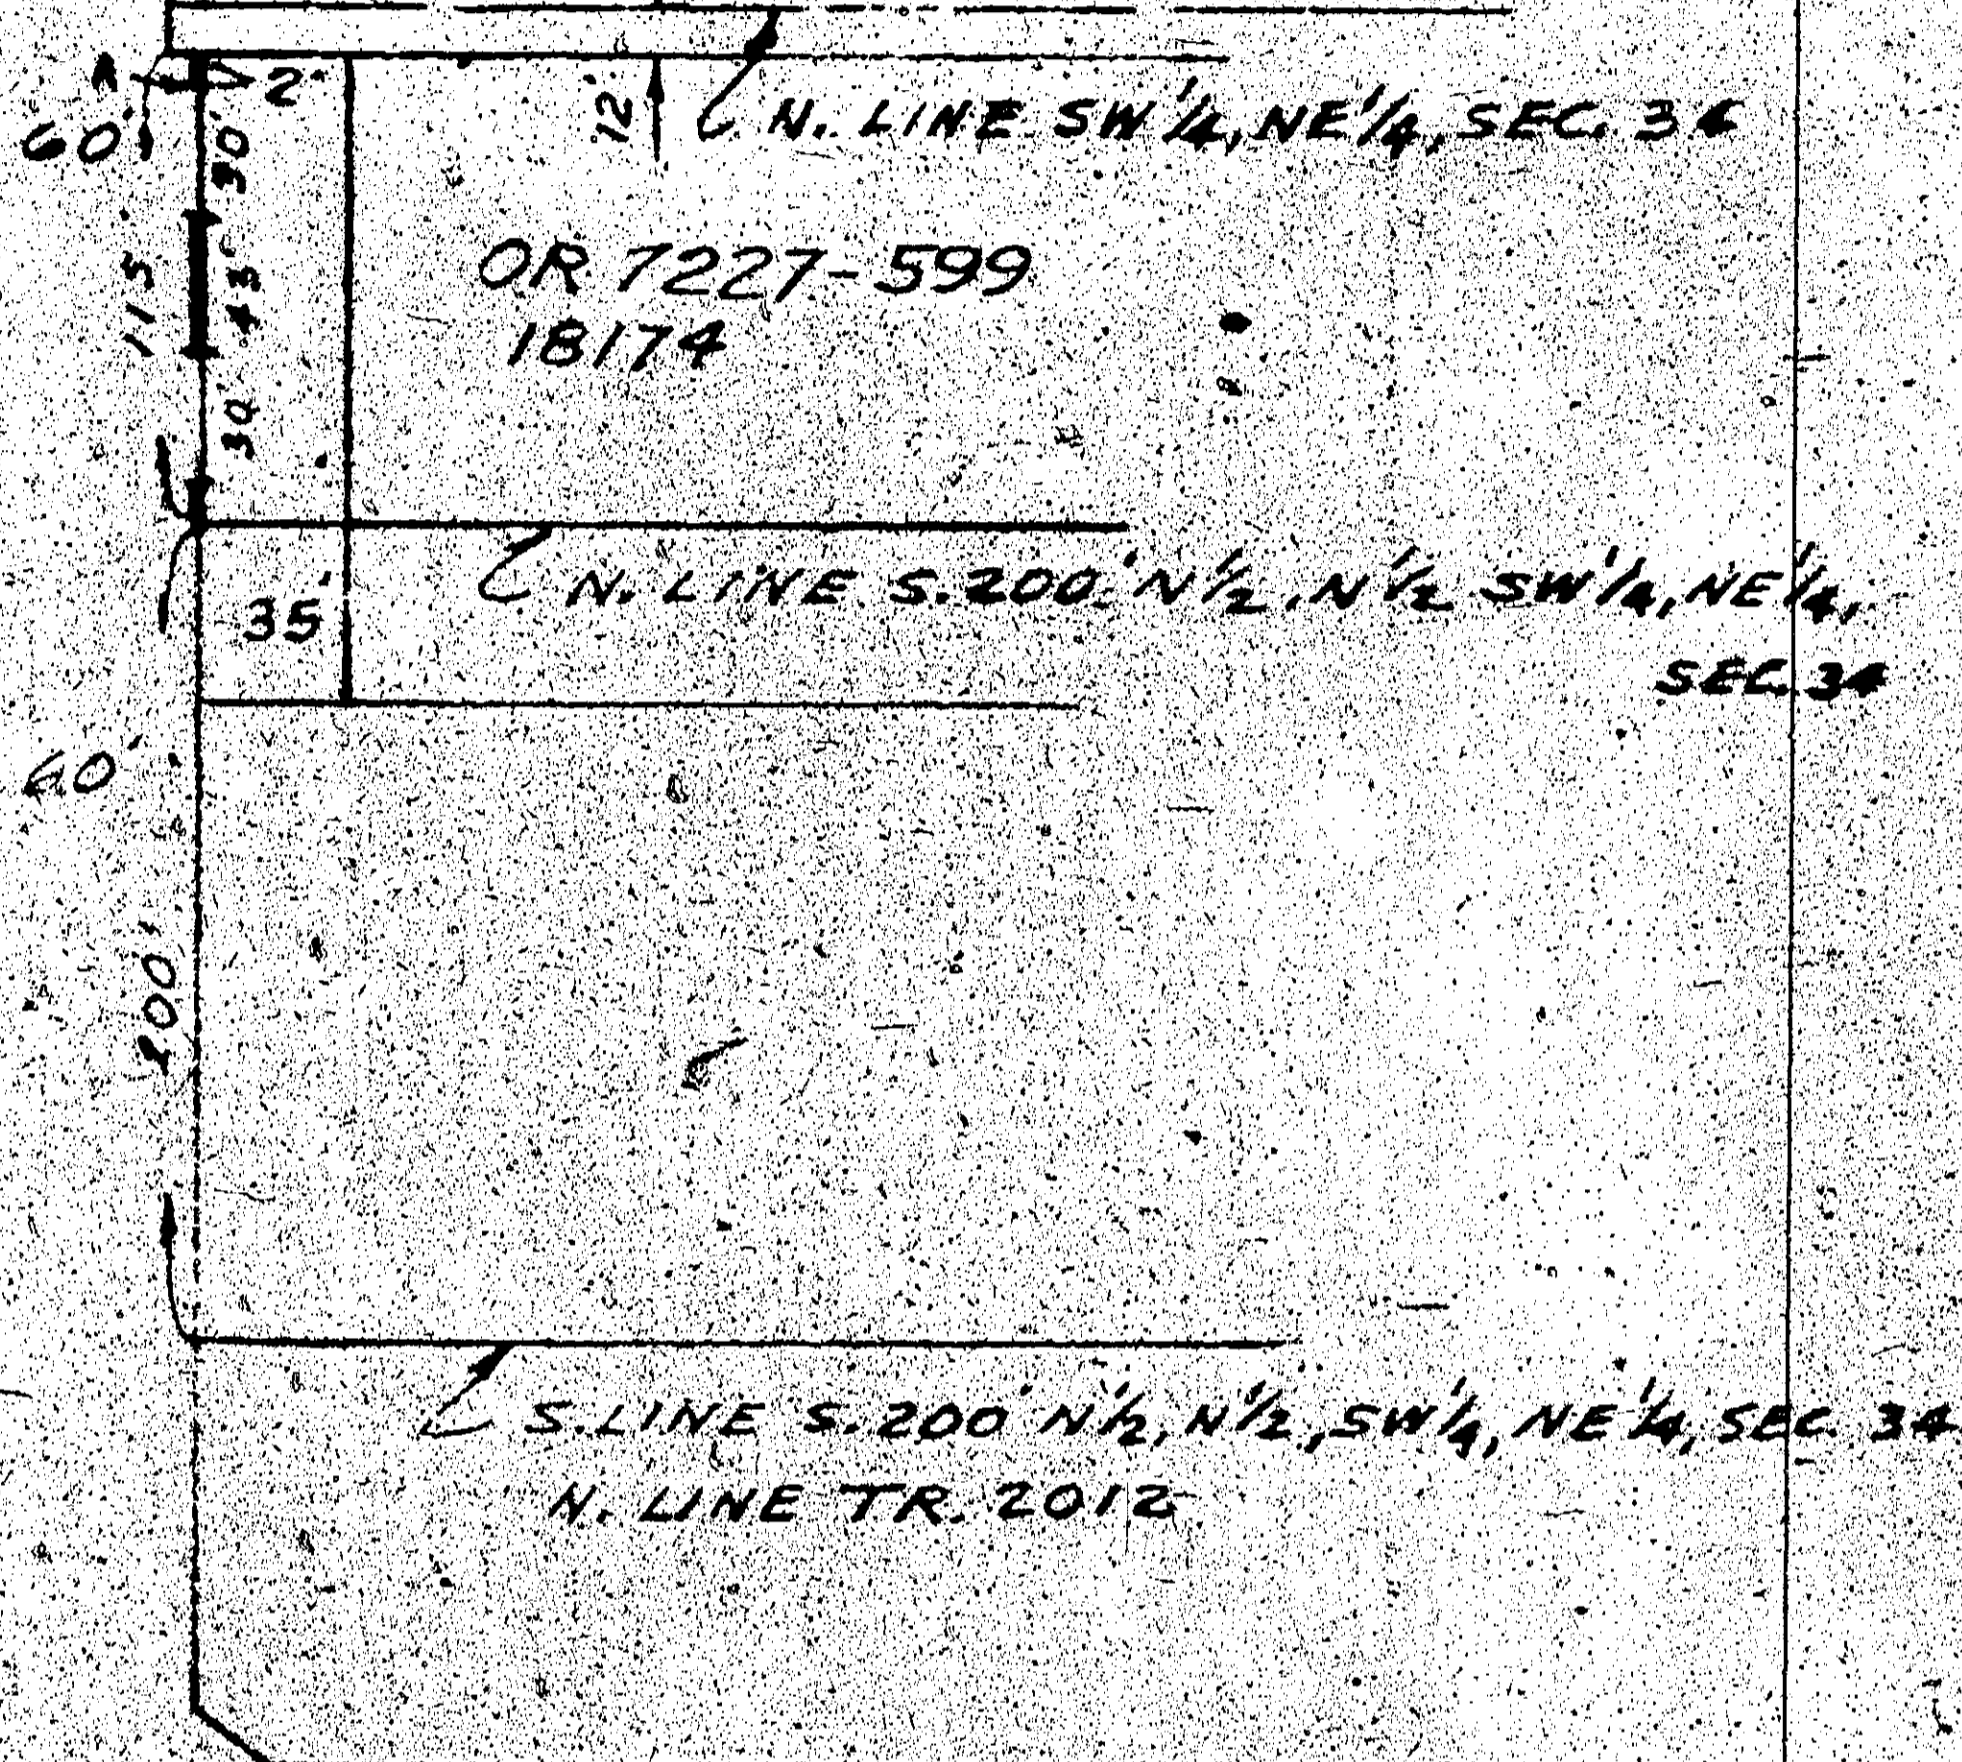 2'
60'
30'
12'
N. LINE SW 1/4, NE 1/4, SEC. 34
115'
43'
OR 7227-599
18174
30'
N. LINE S. 200' N 1/2, N 1/2 SW 1/4, NE 1/4,
SEC. 34
35'
60'
200'
S. LINE S. 200' N 1/2, N 1/2, SW 1/4, NE 1/4, SEC. 34
N. LINE TR. 2012